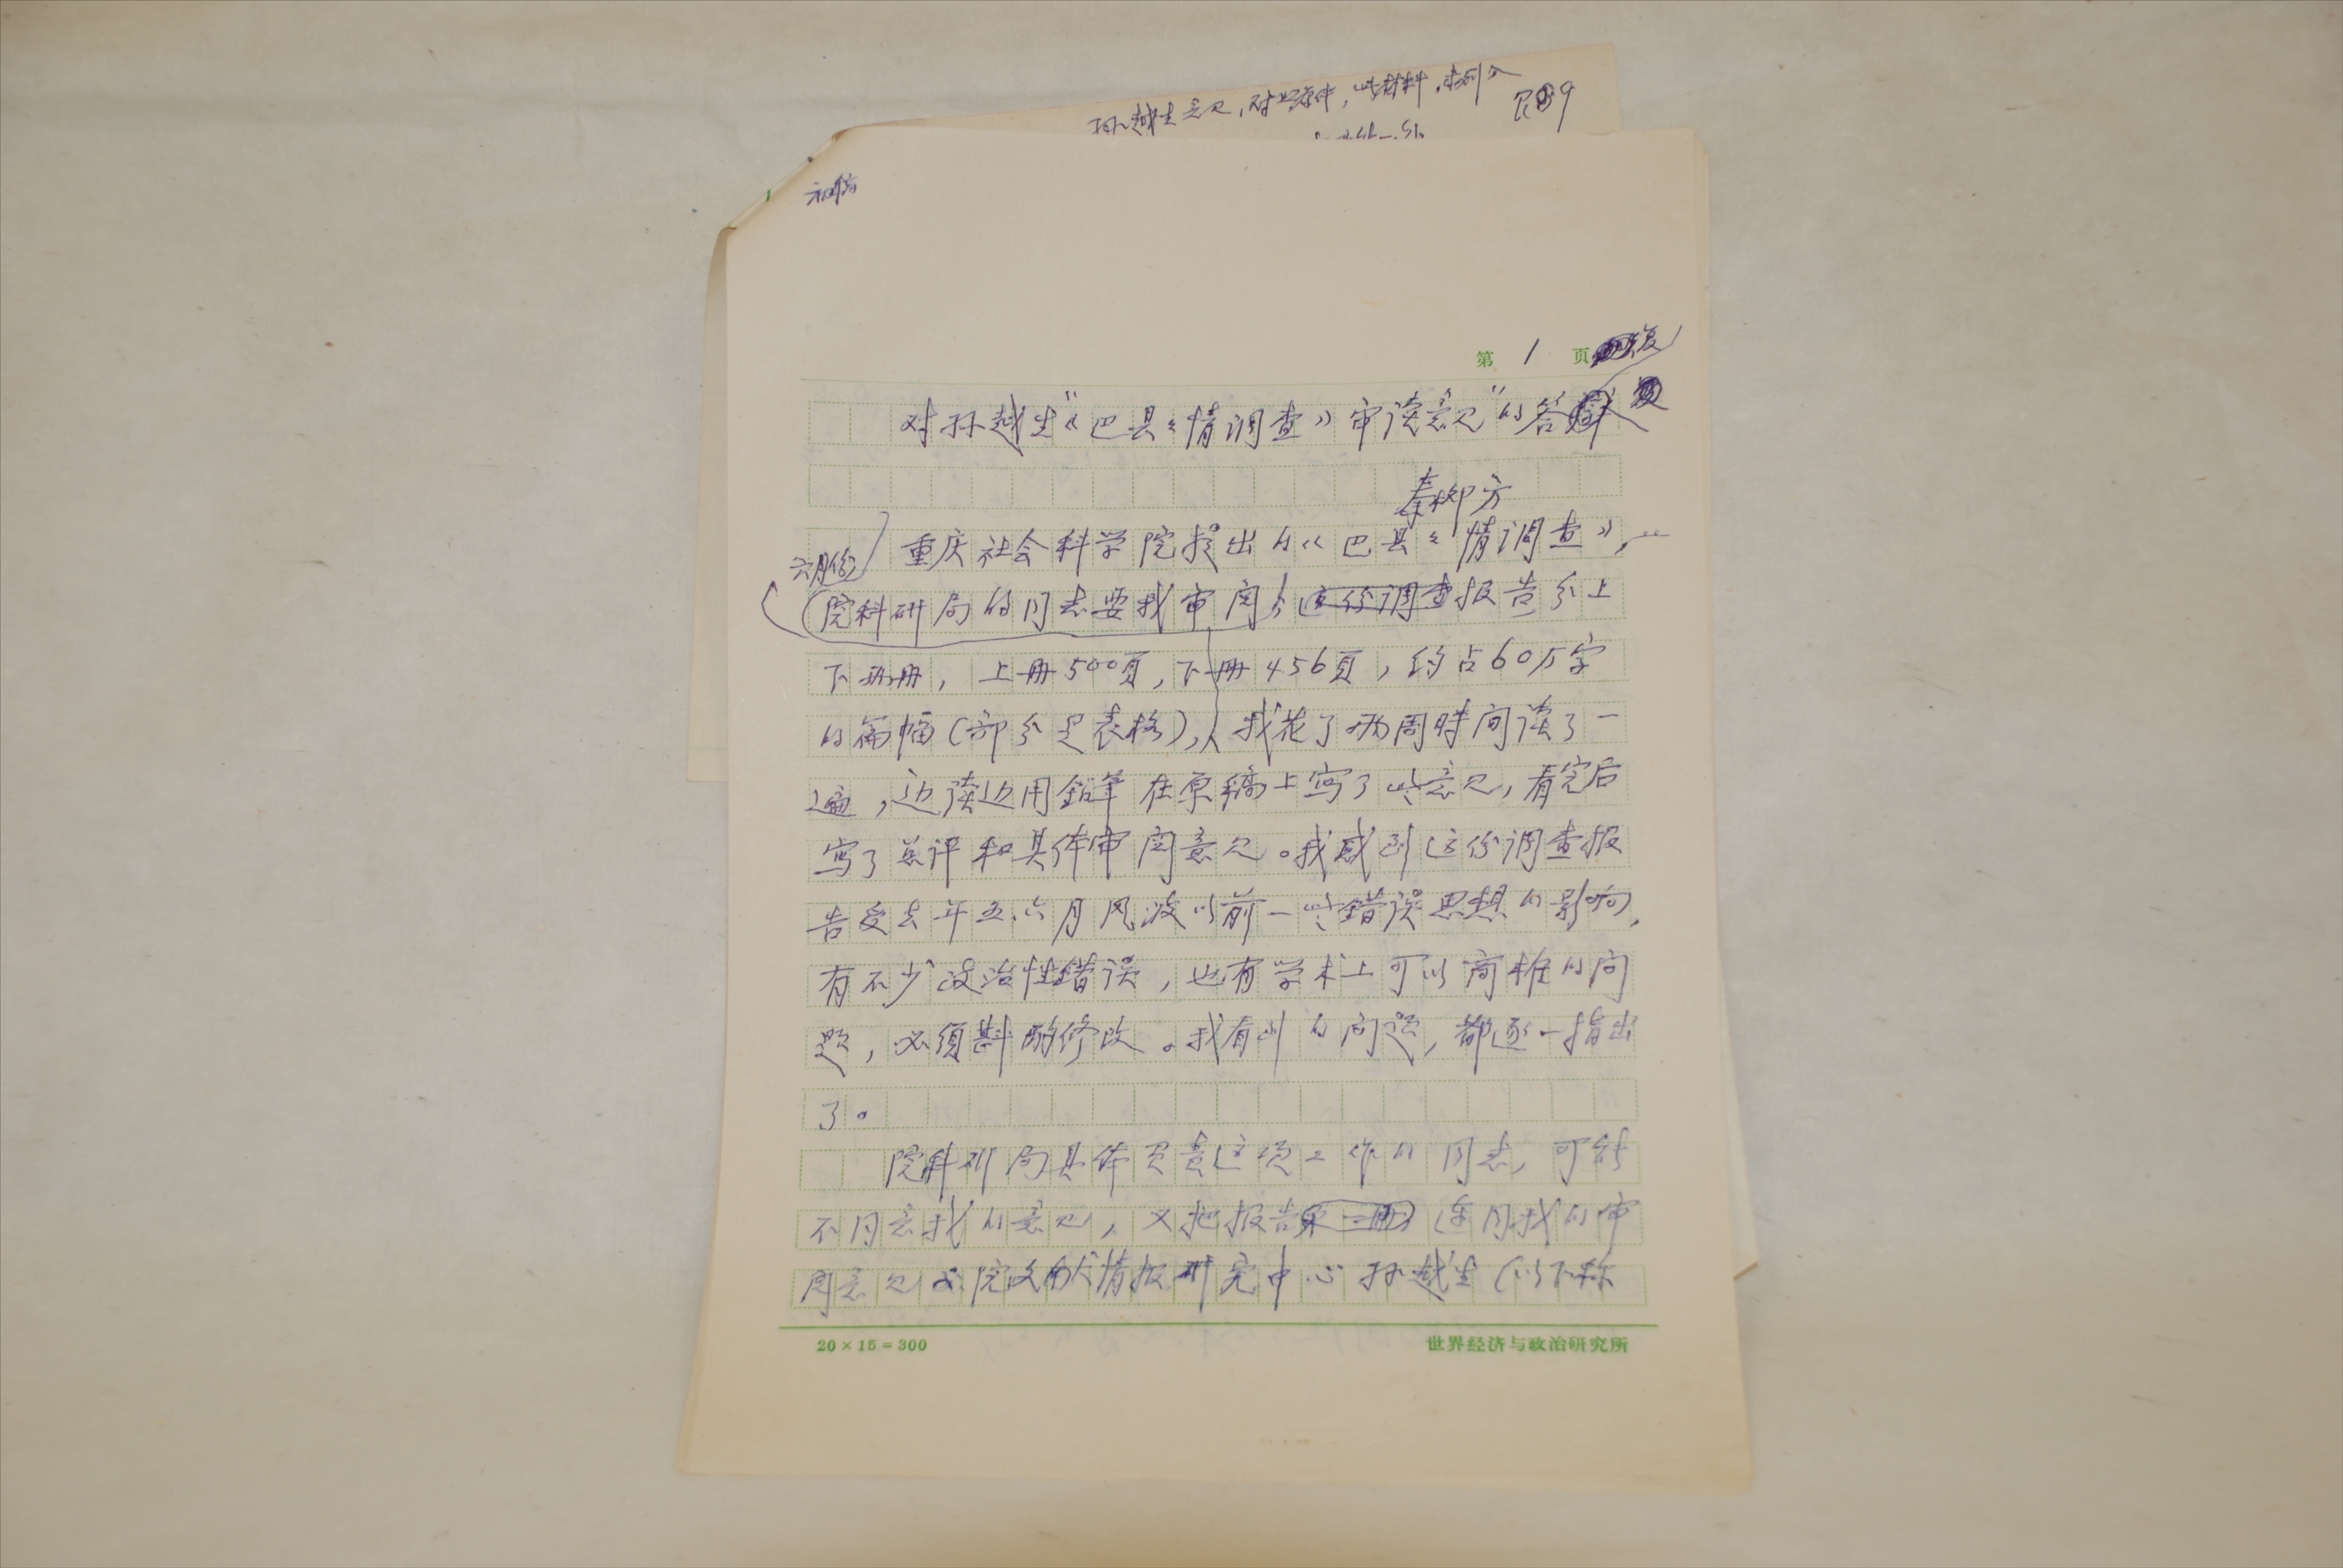 孙越生意见，对照原件，些材料，
初稿
第 1 页
对孙越生“《巴县县情调查》审读意见”的答复
秦柳方
重庆社会科学院提出的《巴县县情调查》，
六月份
院科研局的同志要我审阅，这份调查报告分上
下两册，上册500页，下册456页，约占60万字
的篇幅（部分是表格），我花了两周时间读了一
遍，边读边用铅笔在原稿上写了些意见，看完后
写了总评和具体审阅意见。我感到这份调查报
告受去年五、六月风波以前一些错误思想的影响，
有不少政治性错误，也有学术上可以商榷的问
题，必须斟酌修改。我看到的问题，都逐一指出
了。
院科研局具体负责这项工作的同志，可能
不同意我的意见，又把报告第一册连同我的审
阅意见交院文献情报研究中心孙越生（以下称
20×15=300
世界经济与政治研究所